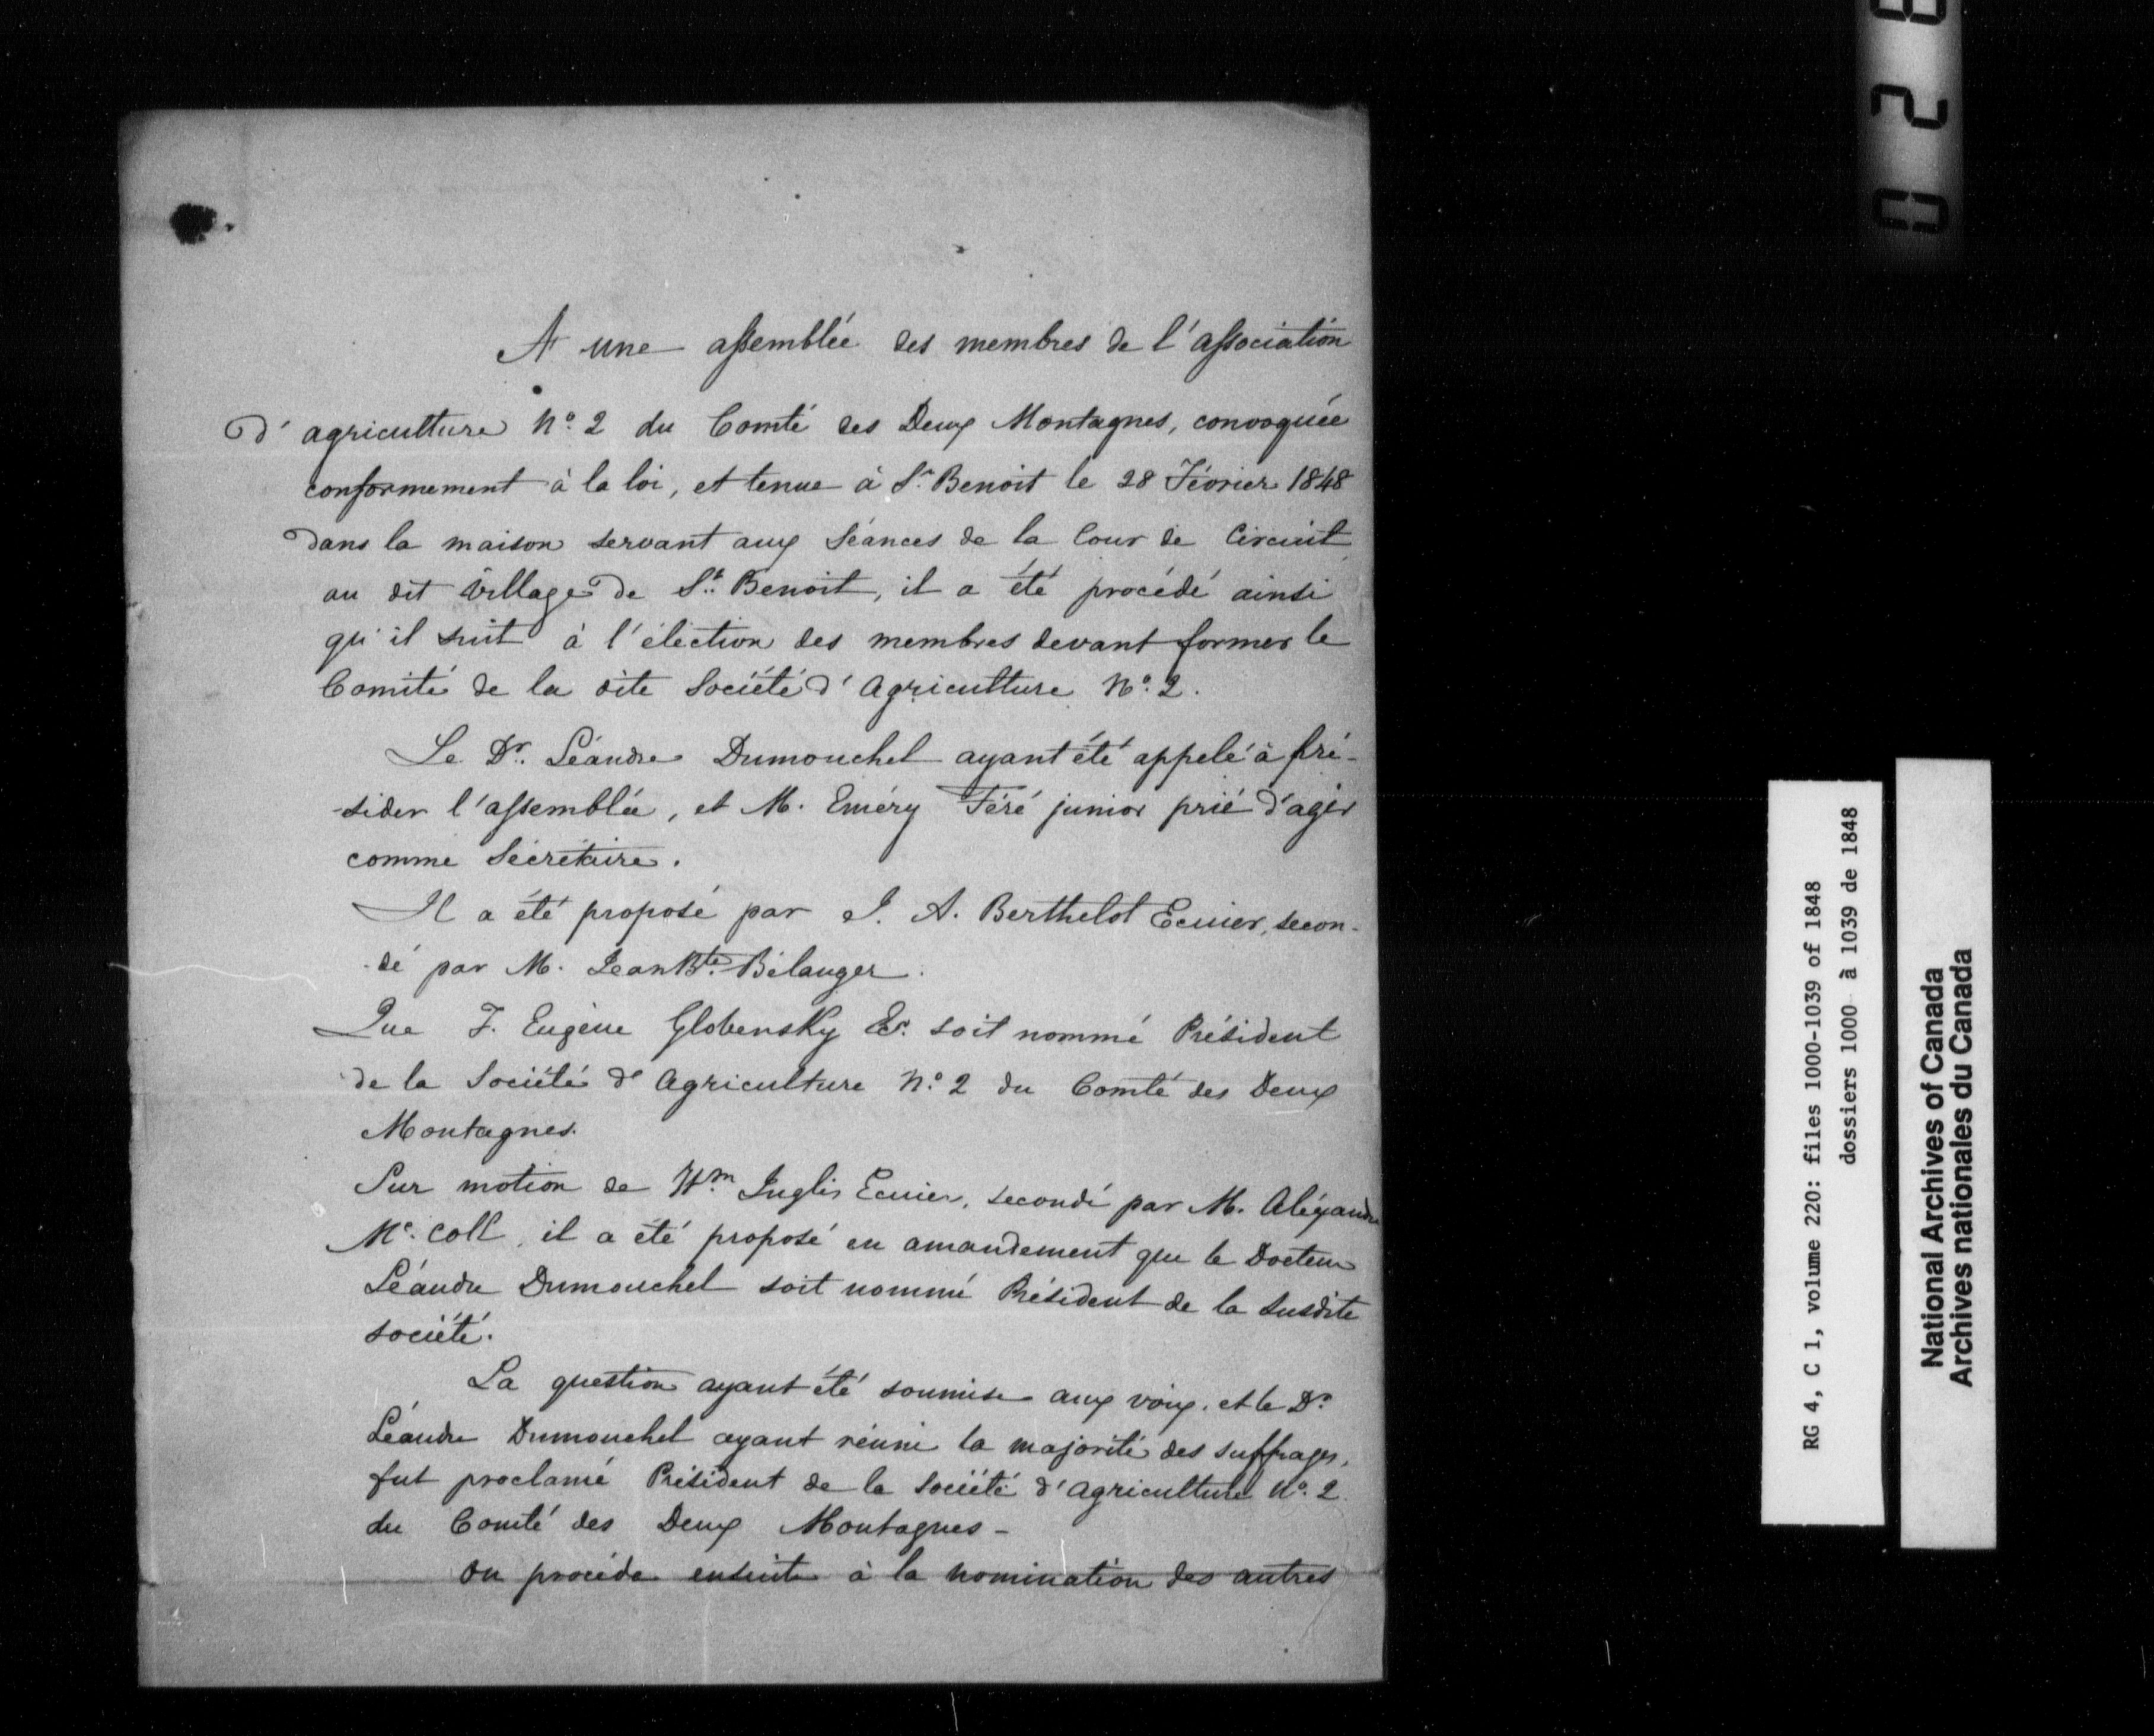 A une assemblée des membres de l'association
d'agriculture No. 2 du Comté des Deux Montagnes, convoquée
conformement à la loi, et tenue à St. Benoit le 28 Février 1848
dans la maison servant aux séances de la Cour de Circuit
au dit village de St. Benoit, il a été procédé ainsi
qu'il suit à l'élection des membres devant former le
Comité de la dite Société d'Agriculture No. 2.
Le Dr. Léandre Dumouchel ayant été appelé à pré-
-sider l'assemblée, et M. Eméry Féré junior prié d'agir
comme Sécrétaire.
Il a été proposé par J. A. Berthelot Ecuier, secon-
-dé par M. Jean Bte. Bélanger.
Que F. Eugène Globensky Er. soit nommé Président
de la Société d'Agriculture No. 2 du Comté des Deux
Montagnes.
Sur motion de Wm. Inglis Ecuier, secondé par M. Aléxandre
Mc. Coll, il a été proposé en amandement que le Docteur
Léandre Dumouchel soit nommé Président de la susdite
société.
La question ayant été soumise aux voix, et le Dr.
Léandre Dumouchel ayant réuni la majorité des suffrages,
fut proclamé Président de la Société d'Agriculture No. 2.
du Comté des Deux Montagnes -
On procéda ensuite à la nomination des autres
RG 4, C 1, volume 220: files 1000-1039 of 1848
dossiers 1000 à 1039 de 1848
National Archives of Canada
Archives nationales du Canada
028